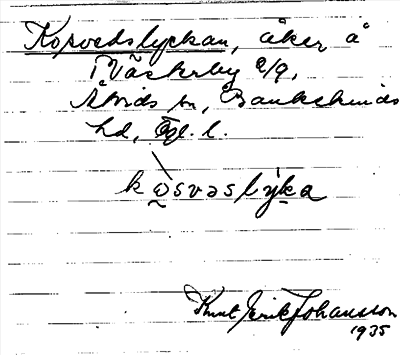 Kosvedslyckan, åker å
Väckerby 2/9,
Åtvids sn, Bankekinds
hd, Ög. l.
kọ̀svəslỳka
Knut Erik Johansson
1935